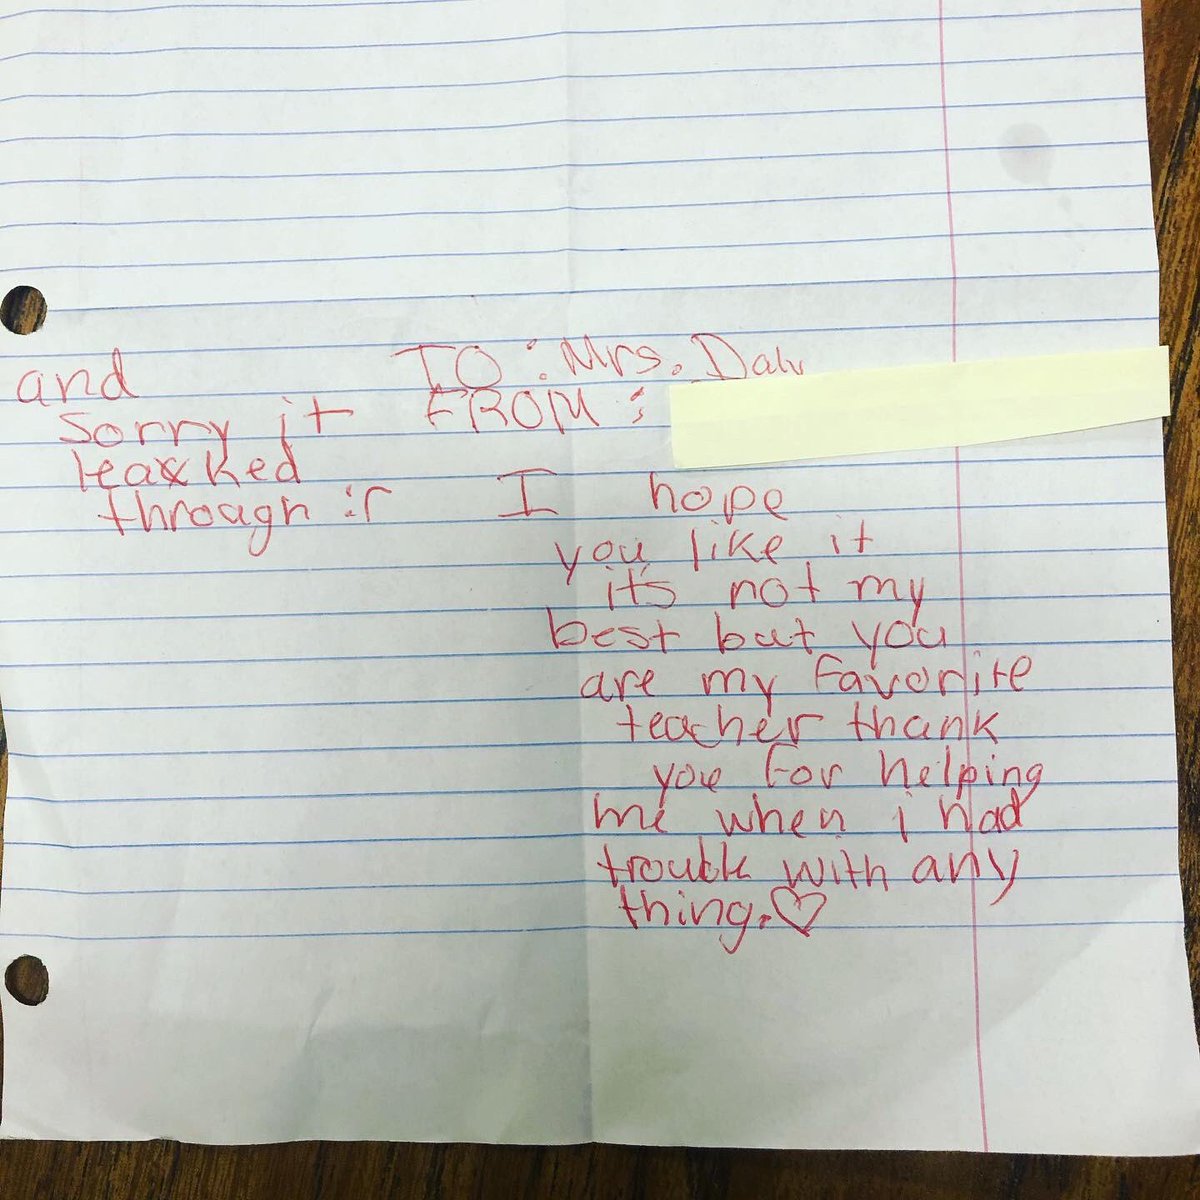 TO: Mrs. Daly
FROM:
I hope
you like it
it's not my
best but you
are my favorite
teacher thank
you for helping
me when i had
trouble with any
thing.♡
and
sorry it
leaked
through :(